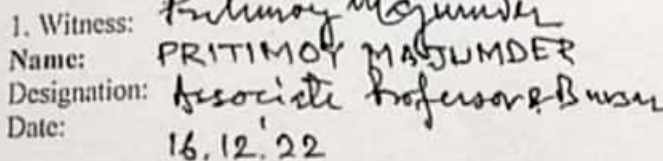 1. Witness: Pritimoy Majumder
Name: PRITIMOY MAJUMDER
Designation: Associate Professor & Bursar
Date: 16.12.22